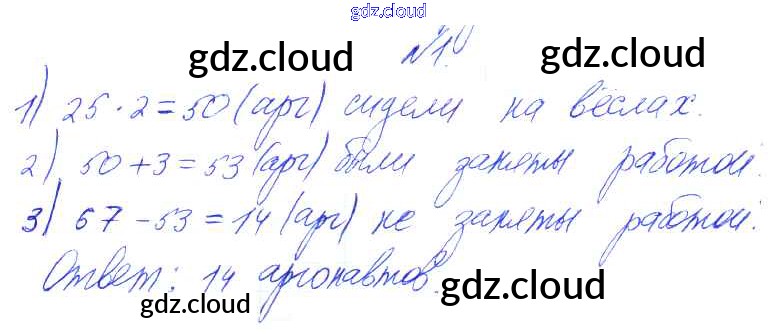 gdz.cloud
gdz.cloud №10 gdz.cloud
1) 25 · 2 = 50 (арг) сидели на вёслах.
2) 50 + 3 = 53 (арг) были заняты работой.
3) 67 - 53 = 14 (арг) не заняты работой.
Ответ: 14 аргонавтов.
gdz.cloud gdz.cloud